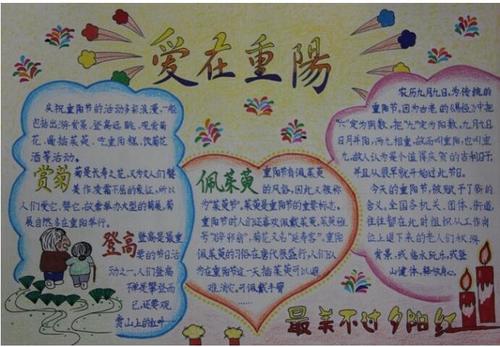 爱在重陽
庆祝重阳节的活动多彩浪漫,一般
包括出游赏景、登高远眺、观赏菊
花、遍插茱萸、吃重阳糕、饮菊花
酒等活动。
赏菊
菊是长寿之花,又为文人们赞
美作凌霜不屈的象征,所以
人们爱它,赞它,故常举办大型的菊展,菊
展自然多在重阳举行。
登高
登高是最重
要的节日活
动之一,人们登高
不单是攀登而
已还要观
赏山上的红叶
佩茱萸
重阳节有佩茱萸
的风俗,因此又被称
为"茱萸节"。茱萸是重阳节的重要标志。
重阳节时人们还喜欢佩戴茱萸,茱萸雅
号"辟邪翁",菊花又名"延寿客"。重阳
佩茱萸的习俗在唐代很盛行,人们认
为在重阳节这一天插茱萸可以避
难消灾,可佩戴于臂
农历九月九日,为传统的
重阳节。因为古老的《易经》中把
"六"定为阴数,把"九"定为阳数,九月九日
日月并阳,两九相重,故而叫重阳,也叫重
九,古人认为是个值得庆贺的吉利日子,
并且从很早就开始过此节日。
今天的重阳节,被赋予了新的
含义,全国各机关、团体、街道,
往往都在此时组织从工作岗
位上退下来的老人们秋游
赏景,或临水玩乐,或登
山健体,
最美不过夕阳红